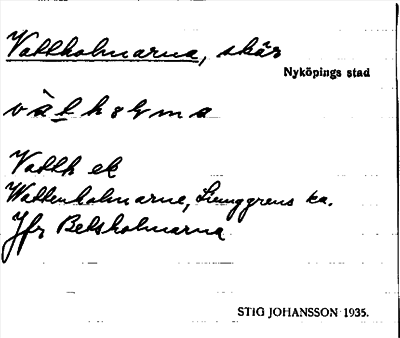 Vattholmarna, skär
Nyköpings stad
vàt holma
Vatth ek
Wattenholmarne, Ljunggrens ka.
Jfr Betsholmarna
STIG JOHANSSON 1935.